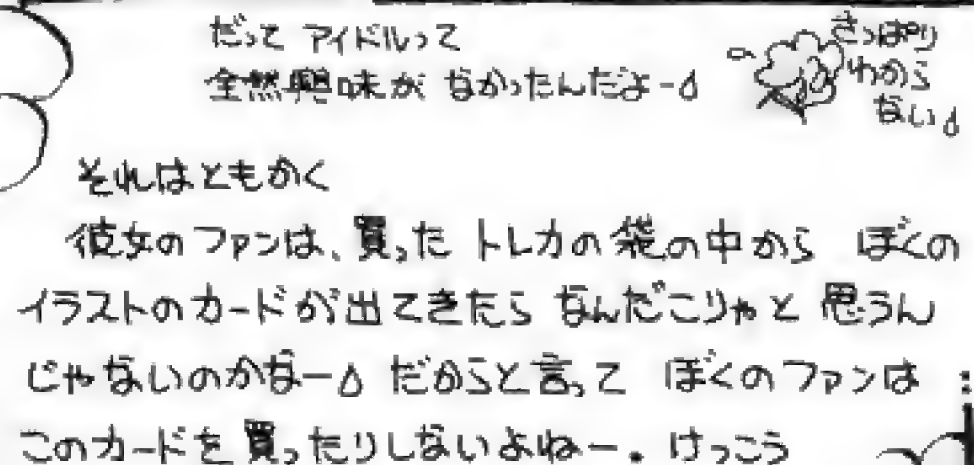 だって アイドルって
全然興味が なかったんだよー
さっぱり
わから
ない
それはともかく
彼女のファンは、買った トレカの袋の中から ぼくの
イラストのカードが出てきたら なんだこりゃと 思うん
じゃないのかなー だからと言って ぼくのファンは
このカードを買ったりしないよねー。けっこう